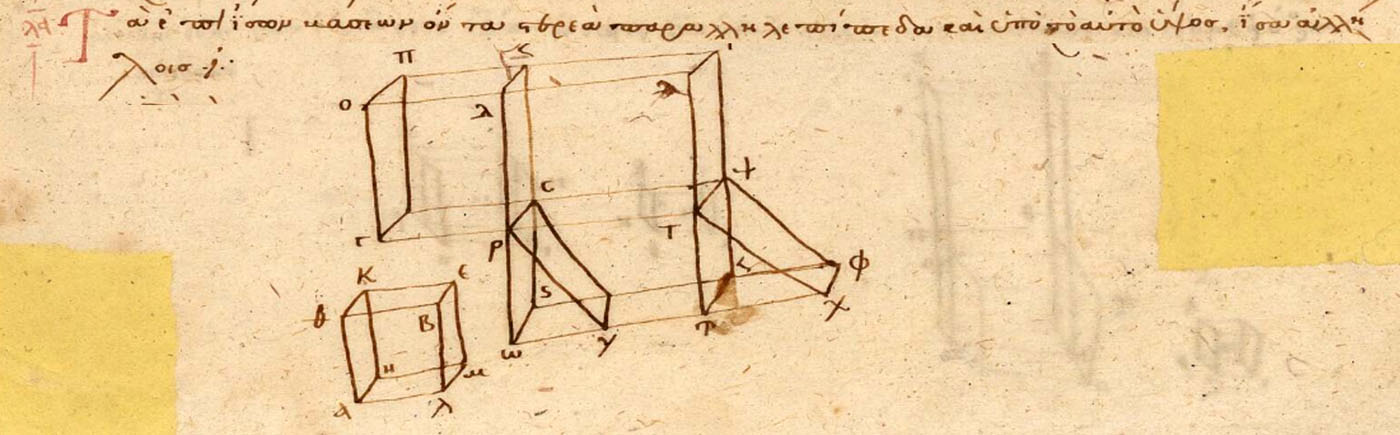 λα Τὰ ἐπὶ ἴσων βάσεων ὄντα στερεὰ παραλληλεπίπεδα καὶ ὑπὸ τὸ αὐτὸ ὕψος, ἴσα ἀλλή
λοις
Π
Ο λ
C
Ρ Τ
Γ
Κ Ε Φ
θ Β S Χ
ω Υ
Η Μ
Α Λ